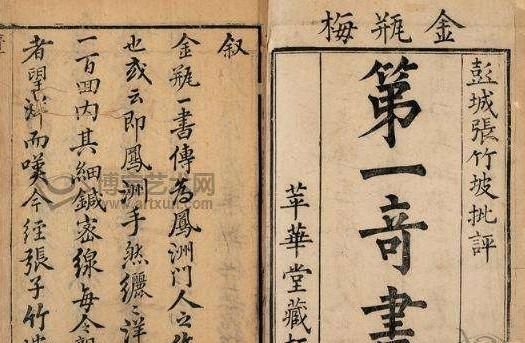 金瓶梅
彭城張竹坡批評
第一竒書
苹華堂藏
叙
金瓶一書傳為鳳洲門人之作
也或云即鳳洲手然纚〻洋
一百回内其細鍼密線每令
者望洋而嘆今經張子竹坡
博宝艺术网
www.artxun.com